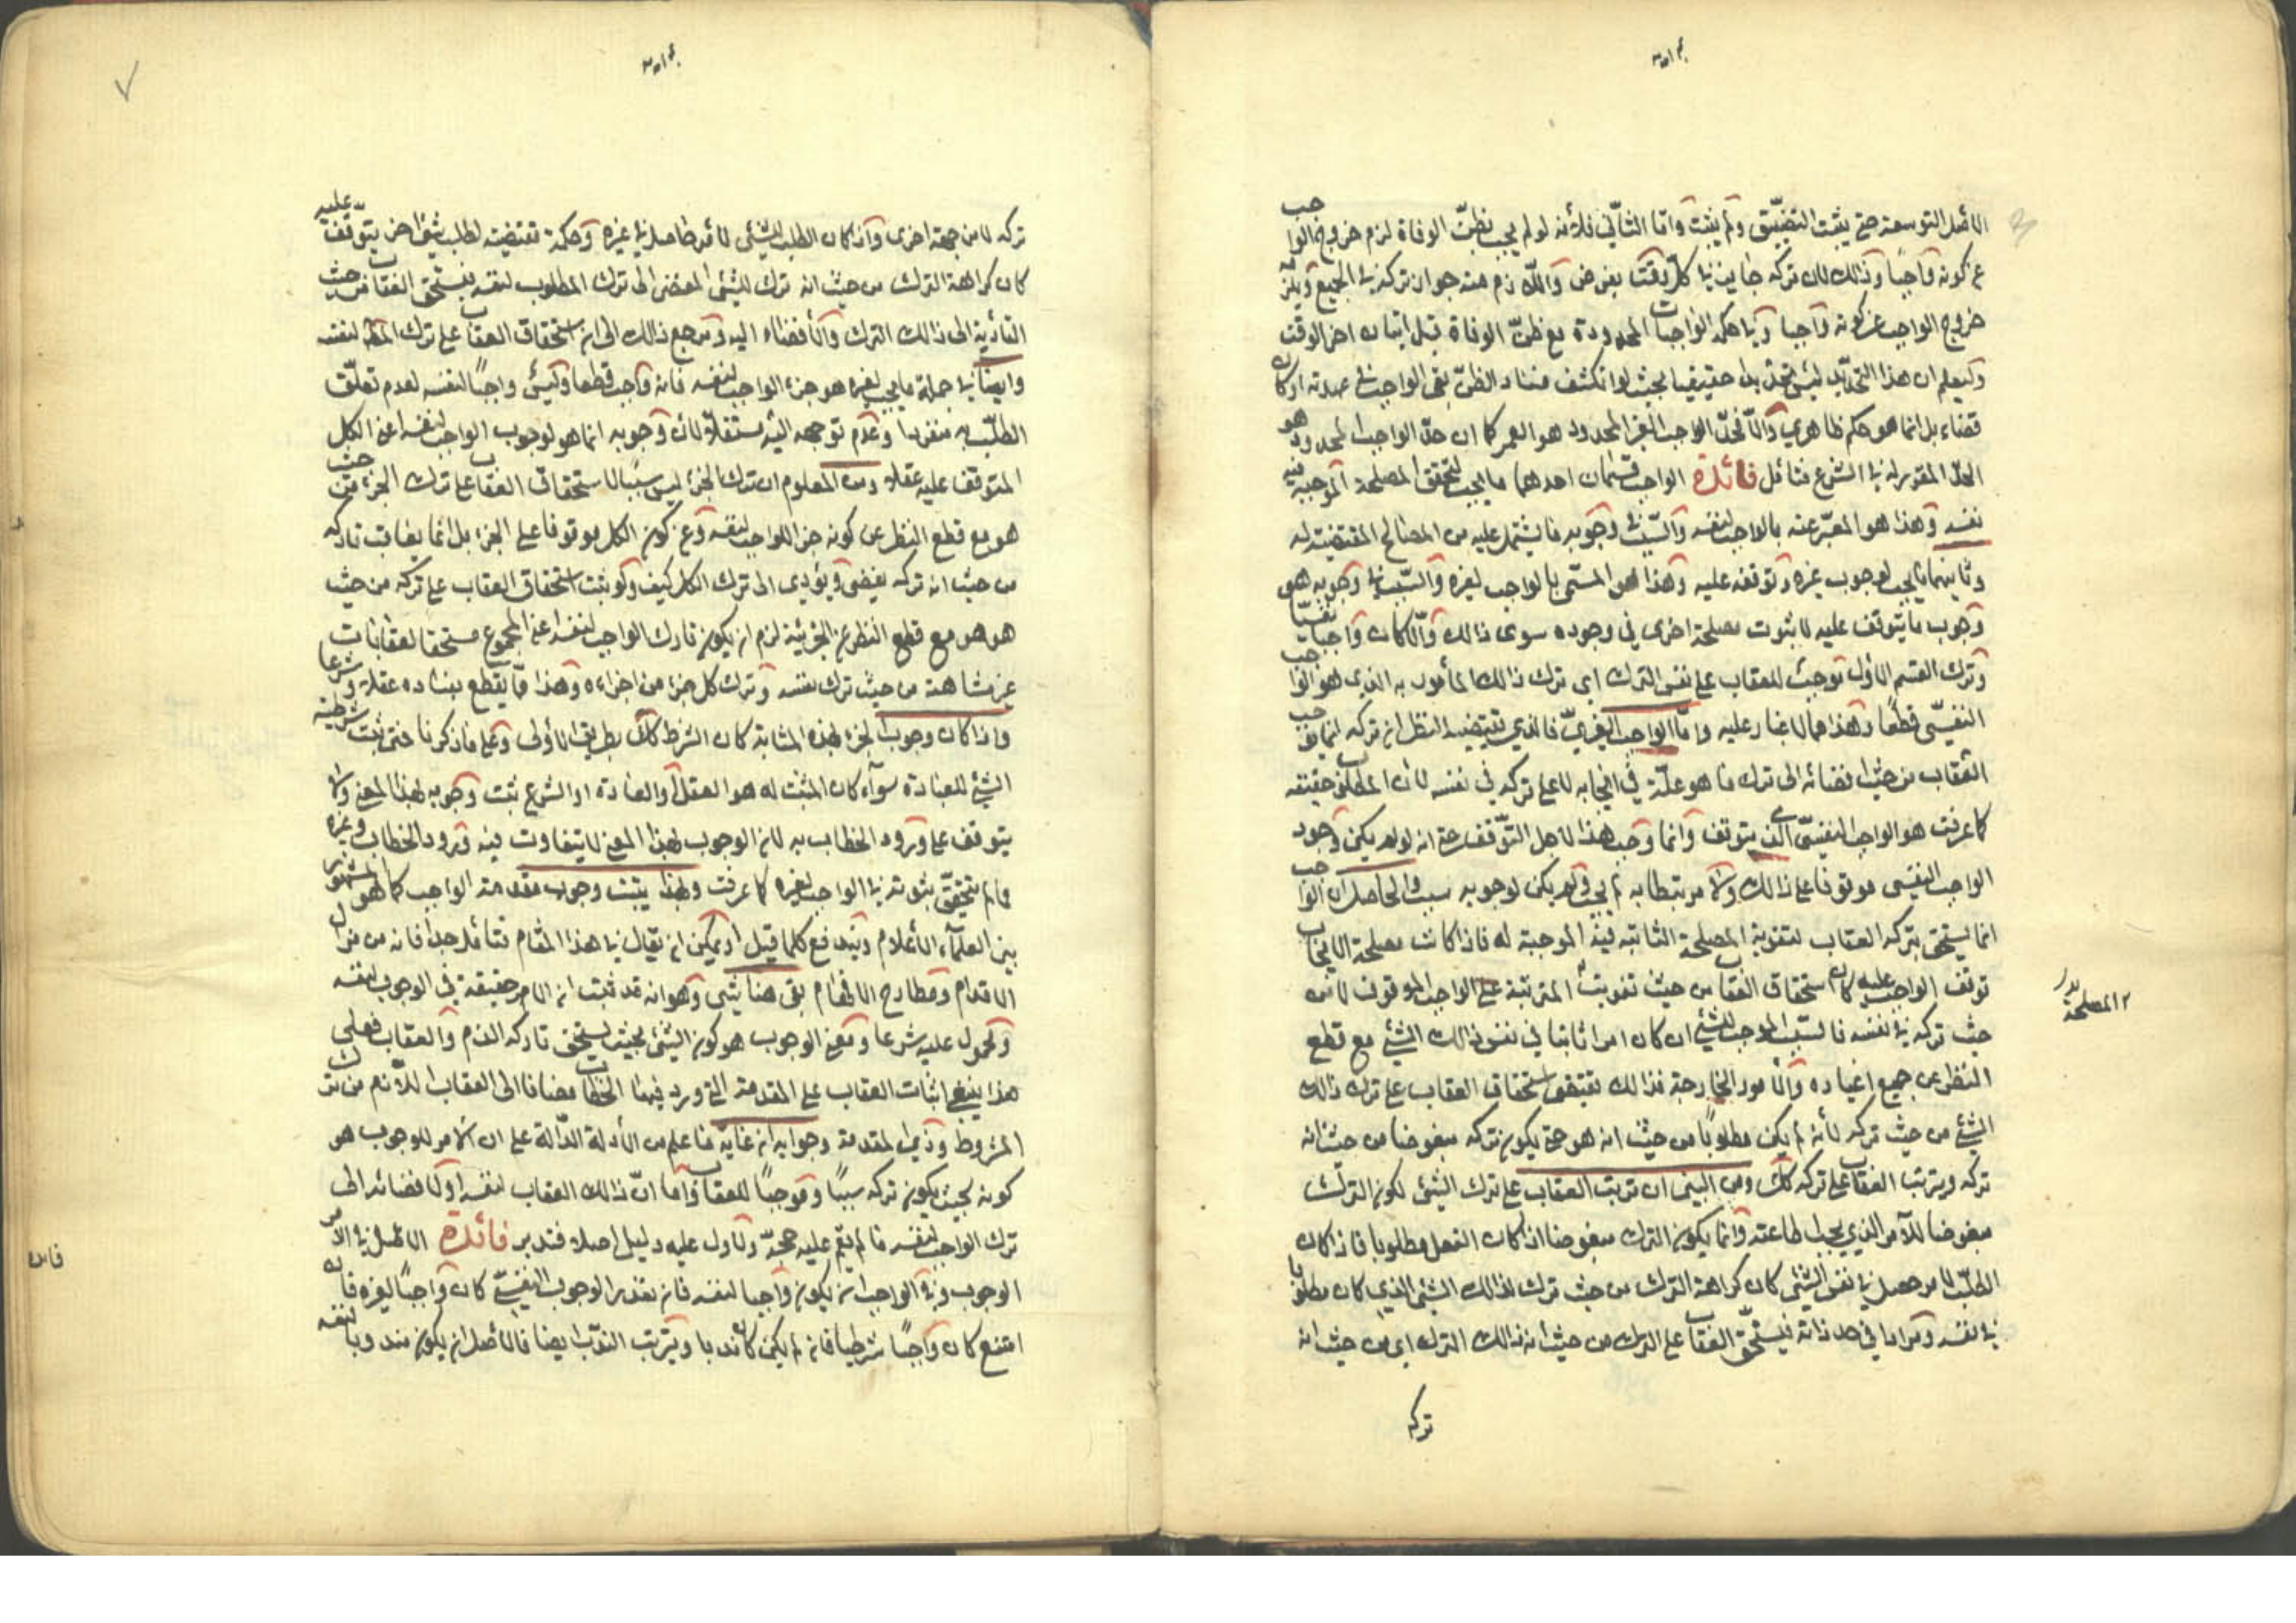 الاصل التوسعة حتى يثبت التضيّق ولم يثبت وامّا الثاني فلأنه لو لم يجب بظنّ الوفاة لزم خروج الواجب
عن كونه واجبا وذلك لان تركه جايز في كلّ وقت بفرض واللازم منه جواز تركه في الجميع ويلزم
خروج الواجب عن كونه واجبا وياحكم الواجبات المحدودة مع ظنّ الوفاة قبل اتيان اخر الوقت
وليعلم ان هذا التحديد ليس تحديدا حقيقيا بحيث لو انكشف فساد الظنّ بقي الواجب في عهدته او كان
قضاء بل انما هو حكم ظاهري والّا فحدّ الواجب الغير المحدود هو العمر كما ان حدّ الواجب المحدود هو
الحدّ المقرر له في الشرع فتأمل فائدة الواجب قسمان احدهما ما يجب لتحقق المصلحة الموجبة فيه
نفسه وهذا هو المعبّر عنه بالواجب لنفسه والسبب في وجوبه ما يشتمل عليه من المصالح المقتضية له
وثانيهما ما يجب لوجوب غيره وتوقفه عليه وهذا هو المسمّى بالواجب لغيره والسبب في وجوبه هو
وجوب ما يتوقف عليه لا ثبوت مصلحة اخرى في وجوده سوى ذالك والّا كان واجبا نفسيّا
وترك القسم الاول يوجب العقاب على نفس الترك اى ترك ذالك المأمور به الذى هو الواجب
النفسيّ قطعًا وهذا مما لا غبار عليه وامّا الواجب الغيريّ فالذي يقتضيه النظر ان تركه انما يوجب
العقاب من حيث افضائه الى ترك ما هو علّة في ايجابه لا على تركه في نفسه لان المطلوب حقيقة
كما عرفت هو الواجب النفسيّ الذي يتوقف وانما وجب هذا لاجل التوقف حتى انه لو لم يكن وجود
الواجب النفسي موقوفا على ذالك ولا مرتبطا به لم يجب ولم يكن لوجوبه سبب والحاصل ان الواجب
انما يستحق بتركه العقاب لتفوية المصلحة الثابته فيه الموجبة له فاذا كانت مصلحة الايجاب
توقف الواجب عليه كان استحقاق العقاب من حيث تفويت المترتبة على الواجب الموقوف لا من
حيث تركه في نفسه فالسبب الموجب للشئ ان كان امرا ثابتا في نفس ذالك الشئ مع قطع
النظر عن جميع اغياره والامور الخارجة فذالك يقتضى استحقاق العقاب على ترك ذالك
الشئ من حيث تركه لانه لم يكن مطلوبًا من حيث انه هو حتى يكون تركه مبغوضا من حيث انه
تركه ويترتب العقاب على تركه كك ومن البيّن ان ترتب العقاب على ترك الشئ لكون الترك
مبغوضا للآمر الذي يجب اطاعته وانما يكون الترك مبغوضا اذا كان الفعل مطلوبا فاذا كان
الطلب لامر حصل في نفس الشئ كان كراهة الترك من حيث ترك لذالك الشئ الذى كان مطلوبا
في نفسه ومرادا في حد ذاته فيستحقّ العقاب على الترك من حيث انه ذالك الترك اى من حيث انه
تركه
المصلحة
تركه لا من جهة اخرى واذا كان الطلب للشئ لامر حاصل في غيره وحكمة تقتضيه لطلب شئ اخر يتوقف عليه
كان كراهة الترك من حيث انه ترك للشئ المفضى الى ترك المطلوب لنفسه فيستحق العقاب من حيث
التأدية الى ذالك الترك والافضاء اليه ومرجع ذالك الى ان استحقاق العقاب على ترك المط لنفسه
وايضا في جملة ما يجب لغيره هو جزء الواجب لنفسه فانه واجب قطعا وليس واجبًا لنفسه لعدم تعلّق
الطلب به منفردا وعدم توجهه اليه مستقلّا لان وجوبه انما هو لوجوب الواجب لنفسه اعنى الكل
المتوقف عليه عقلا ومن المعلوم ان ترك الجزء ليس سببا لاستحقاق العقاب على ترك الجزء من حيث
هو مع قطع النظر عن كونه جزء للواجب لنفسه وعن كون الكل موقوفا على الجزء بل انما يعاقب تاركه
من حيث انه تركه يفضى ويؤدي الى ترك الكل كيف ولو ثبت استحقاق العقاب على تركه من حيث
هو هو مع قطع النظر عن الجزئية لزم ان يكون تارك الواجب لنفسه اعنى المجموع مستحقا لعقابات
غير متناهية من حيث ترك نفسه وترك كل جزء من اجزاءه وهذا ممّا يقطع بفساده عقلا وشرعا
واذا كان وجوب الجزء بهذه المثابة كان الشرط كك بطريق الاولى وعلى ما ذكرنا متى ثبت شرطية
الشئ للعبادة سوآء كان المثبت له هو العقل او العادة او الشرع ثبت وجوبه بهذا المعنى ولا
يتوقف على ورود الخطاب به لان الوجوب بهذا المعنى لا يتفاوت فيه ورود الخطاب وغيره
ما لم يتحقق ثبوته في الواجب لغيره كما عرفت وبهذا يثبت وجوب مقدمة الواجب كما هو المشهور
بين العلمآء الاعلام ويندفع كلما قيل او يمكن ان يقال في هذا المقام فتأمل جدا فانه من مزال
الاقدام ومطارح الافهام بقى هنا شئ وهو انه قد ثبت ان الامر حقيقة في الوجوب لنفسه
ومحمول عليه شرعا ومعنى الوجوب هو كون الشئ بحيث يستحق تاركه الذم والعقاب فعلى
هذا ينبغى اثبات العقاب على المقدمة التى ورد فيها الخطاب مضافا الى العقاب اللازم من ترك
المشروط وذي المقدمة وجوابه ان غاية ما علم من الأدلة الدالة على ان الامر للوجوب هو
كونه بحيث يكون تركه سببًا وموجبًا للعقاب وامّا انّ ذالك العقاب لنفسه او لافضائه الى
ترك الواجب لنفسه فما لم يقم عليه حجّة ولا دلّ عليه دليل اصلا فتدبر فائدة الاصل في الامر
الوجوب وفى الواجب ان يكون واجبا لنفسه فان تعذر الوجوب النفسيّ كان واجبًا لغيره فان
امتنع كان واجبًا شرطيا فان لم يكن كان ندبا ويترتب الندب ايضا فالاصل ان يكون مندوبا لنفسه